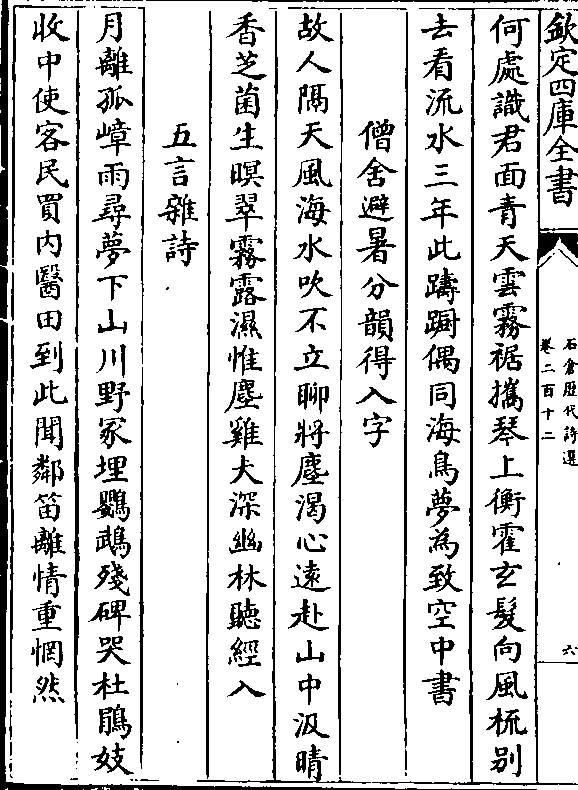 欽定四庫全書
石倉歴代詩選
卷二百十二
六
何處識君面青天雲霧裾攜琴上衡霍玄髮向風梳别
去看流水三年此躊蹰偶同海鳥夢為致空中書
僧舍避暑分韻得入字
故人隔天風海水吹不立聊將塵渴心逺赴山中汲晴
香芝菌生暝翠霧露濕惟塵雞犬深幽林聽經入
五言雜詩
月離孤嶂雨尋夢下山川野冢埋鸚鵡殘碑哭杜鵑妓
收中使客民買内醫田到此聞鄰笛離情重惘然